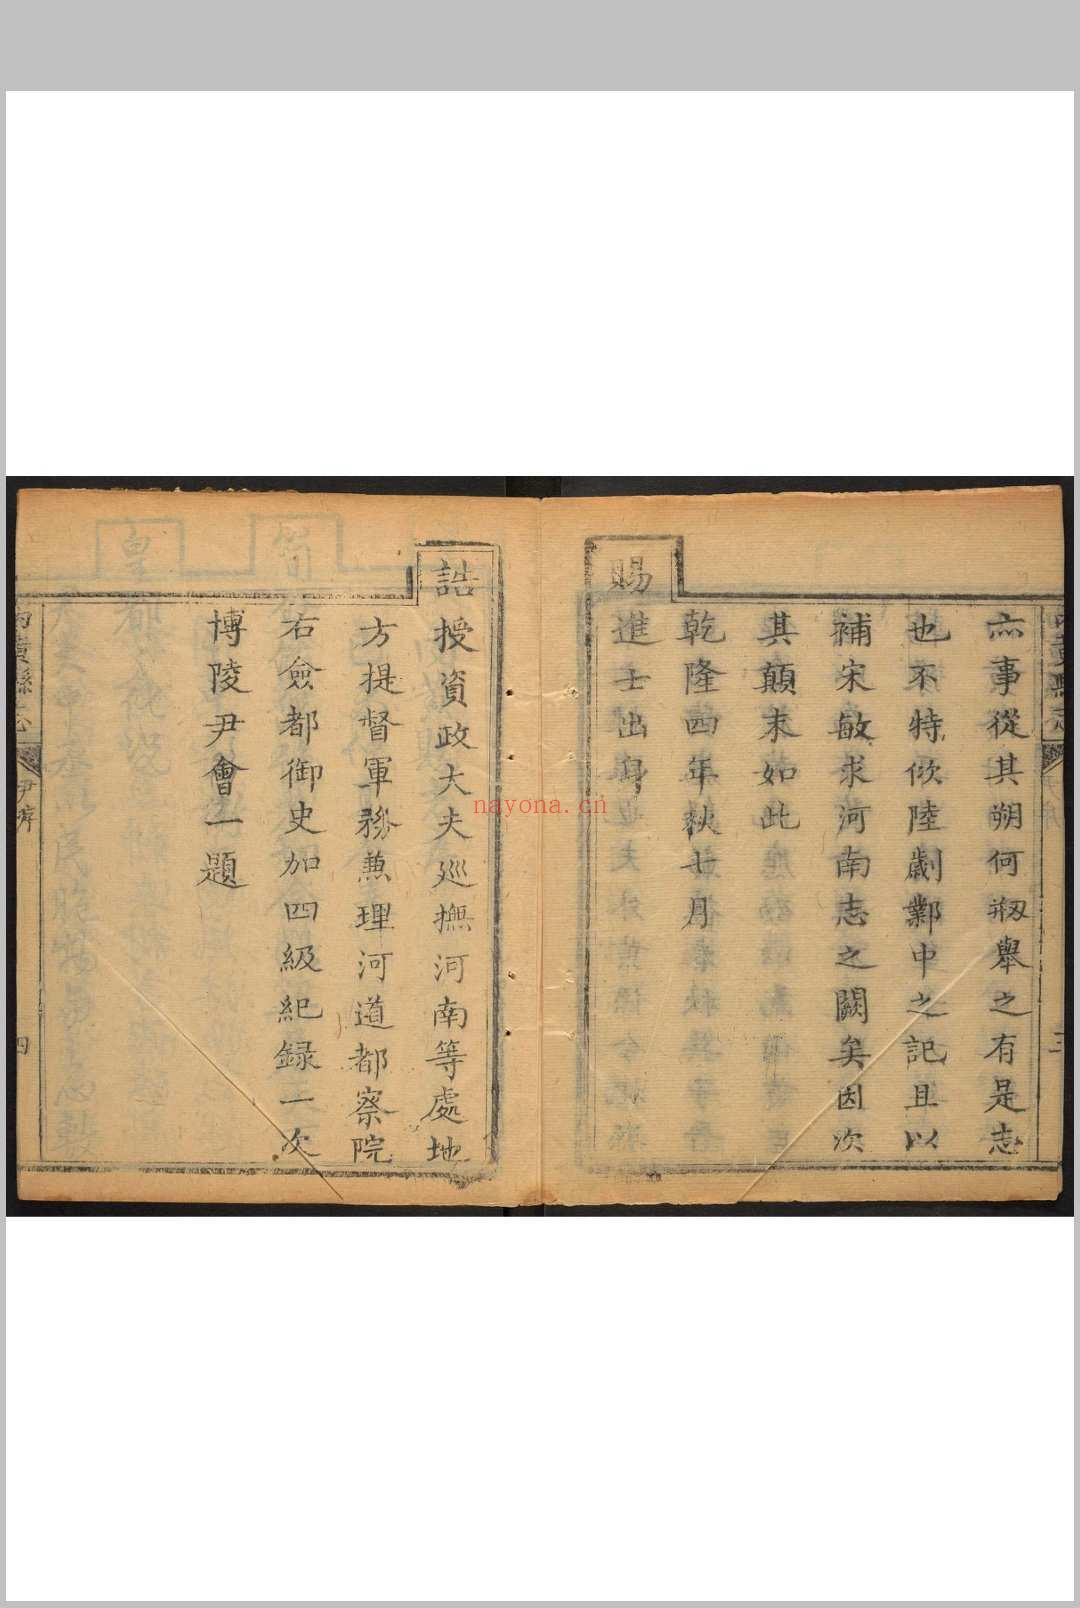 亦事從其朔何剏舉之有是志
也不特倣陸劌鄴中之記且以
補宋敏求河南志之闕矣因次
其顛末如此
乾隆四年秋七月
賜進士出身
誥授資政大夫廵撫河南等處地
方提督軍務兼理河道都察院
右僉都御史加四級紀録一次
博陵尹會一題
内黃縣志
尹序
四
nayona.cn